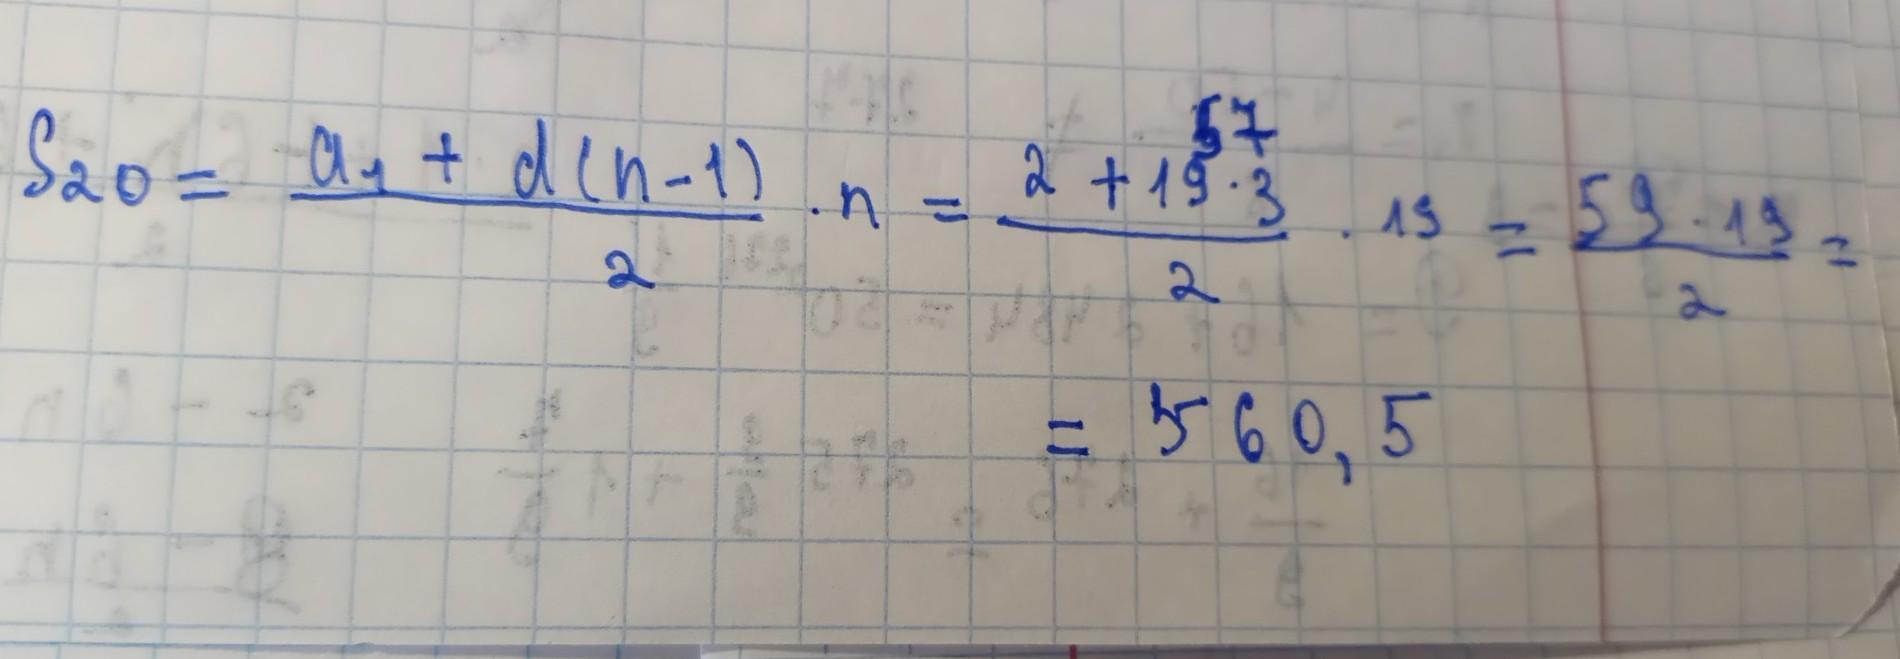 S₂₀ = (a₁ + d(n-1))/2 · n = (2 + 19·3)/2 · 19 = (59·19)/2 =
57
= 560,5